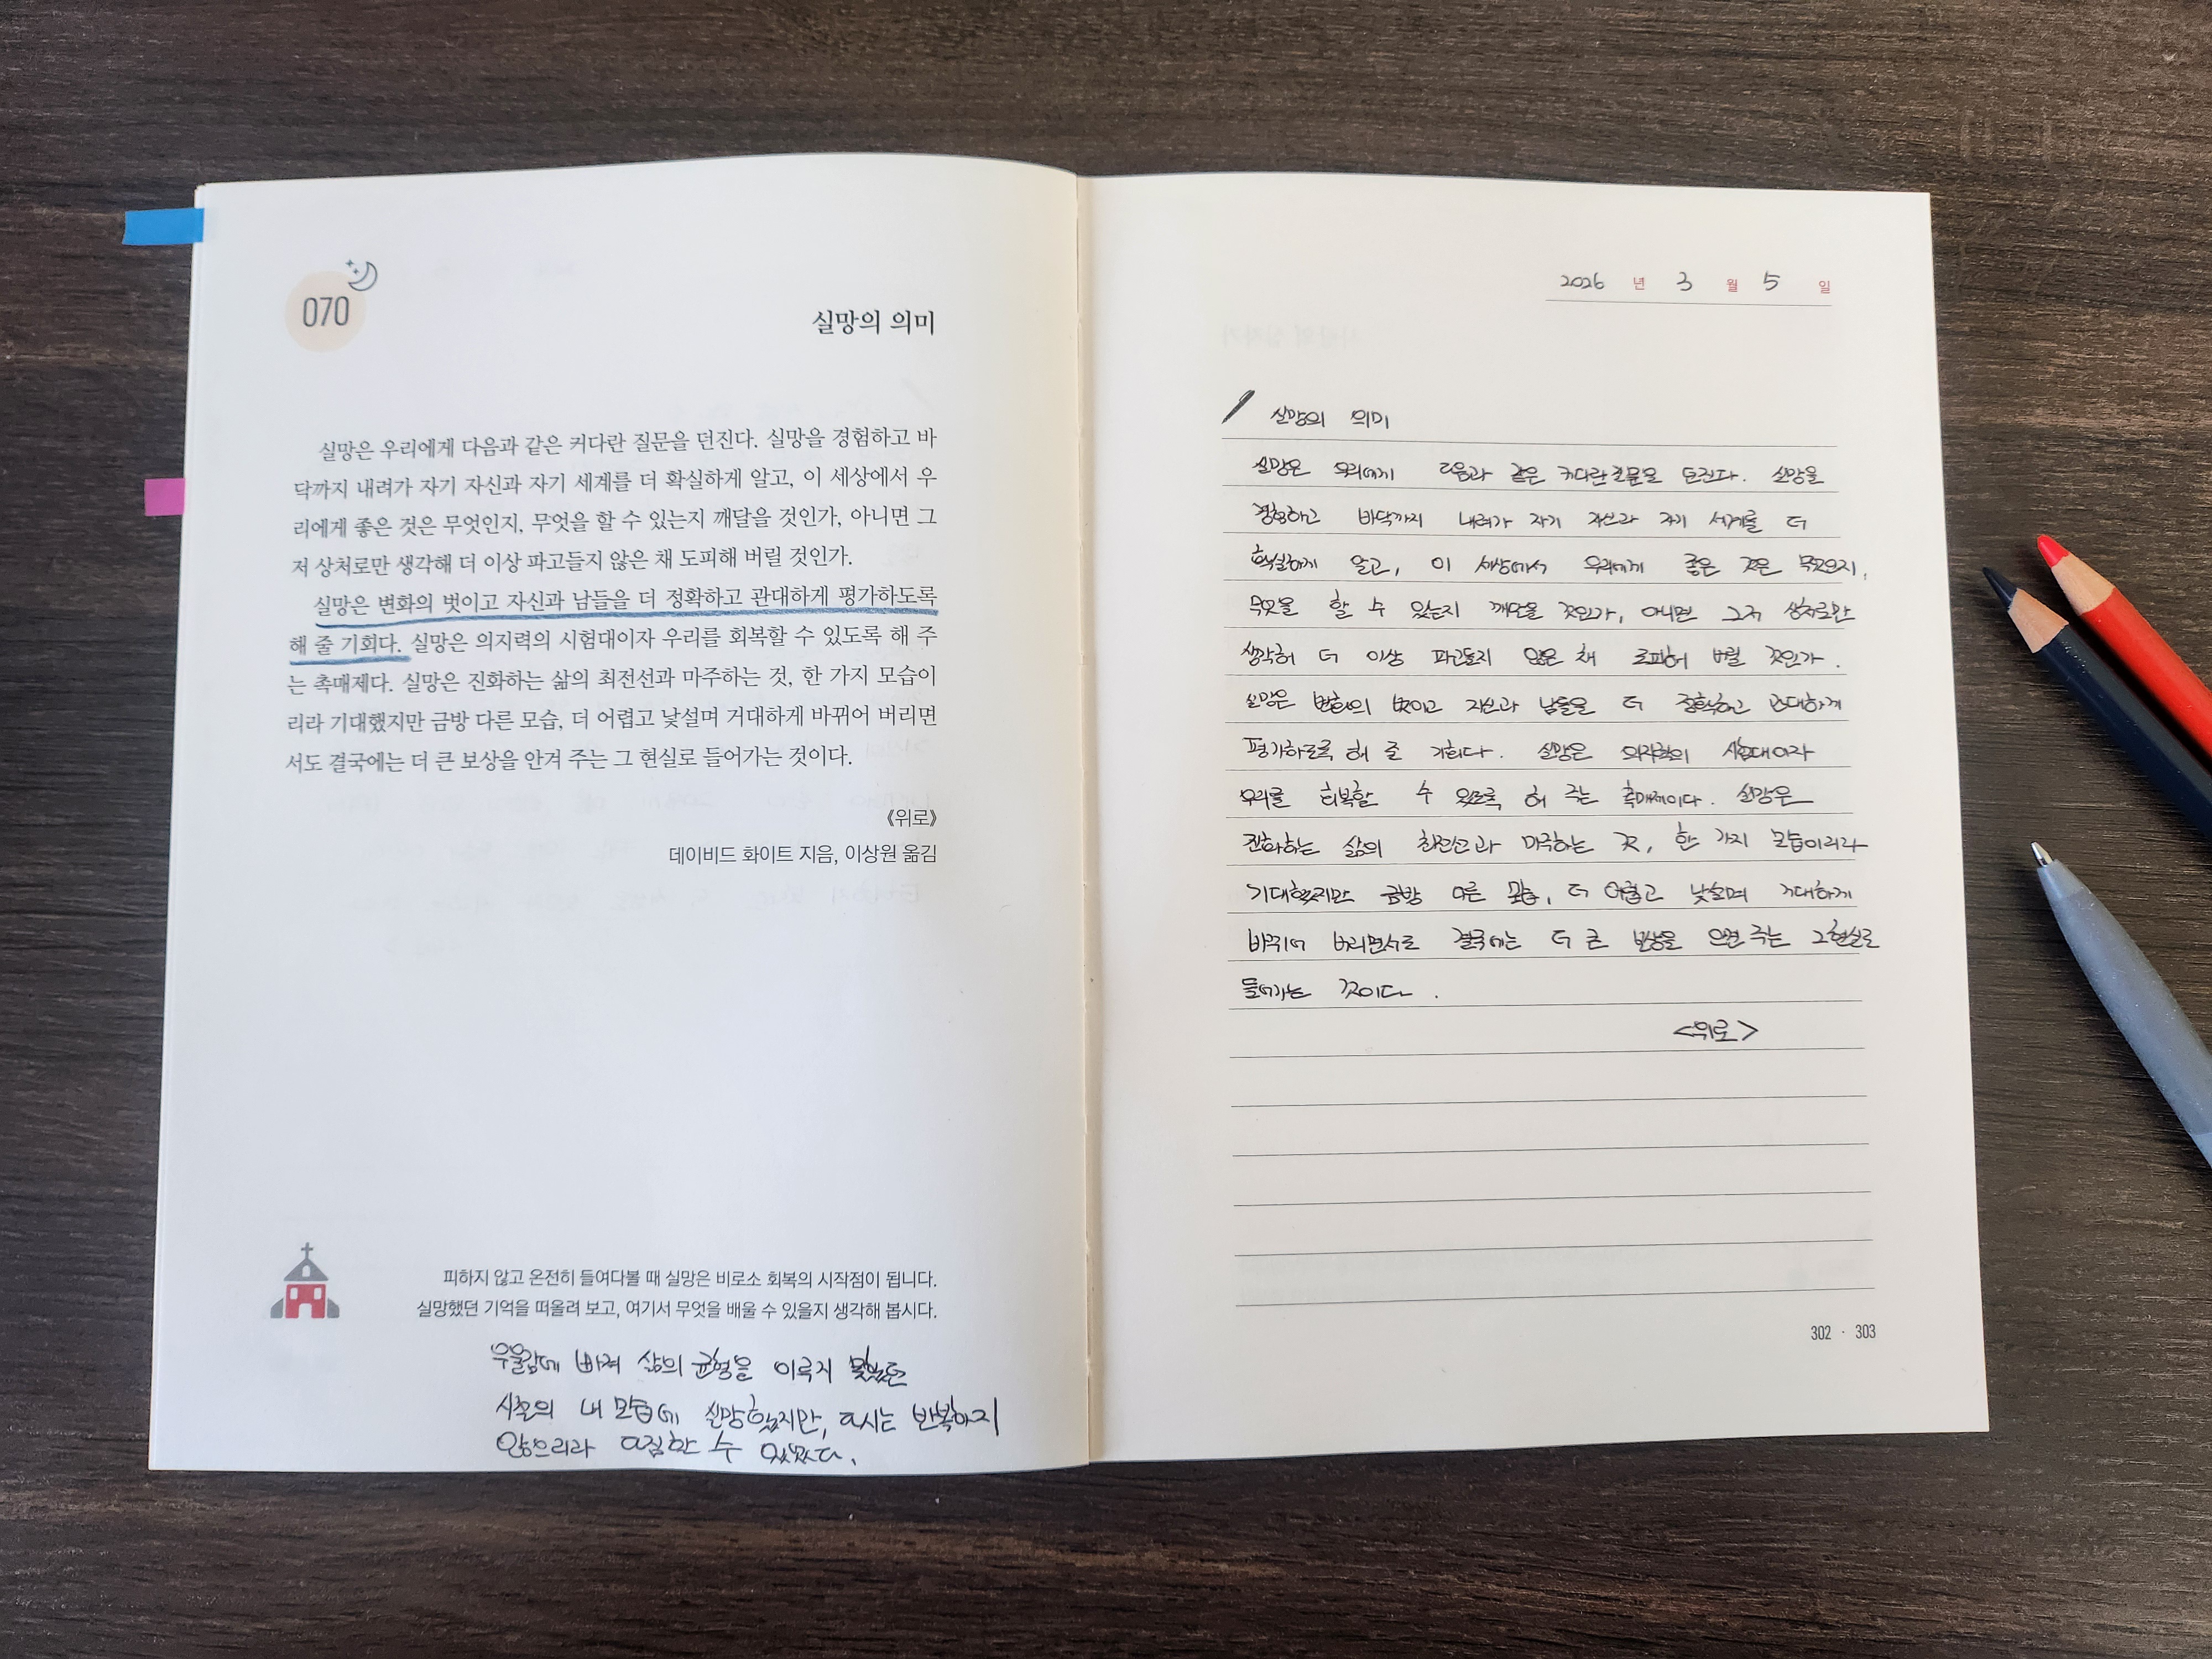 070
실망의 의미
실망은 우리에게 다음과 같은 커다란 질문을 던진다. 실망을 경험하고 바
닥까지 내려가 자기 자신과 자기 세계를 더 확실하게 알고, 이 세상에서 우
리에게 좋은 것은 무엇인지, 무엇을 할 수 있는지 깨달을 것인가, 아니면 그
저 상처로만 생각해 더 이상 파고들지 않은 채 도피해 버릴 것인가.
실망은 변화의 벗이고 자신과 남들을 더 정확하고 관대하게 평가하도록
해 줄 기회다. 실망은 의지력의 시험대이자 우리를 회복할 수 있도록 해 주
는 촉매제다. 실망은 진화하는 삶의 최전선과 마주하는 것, 한 가지 모습이
리라 기대했지만 금방 다른 모습, 더 어렵고 낯설며 거대하게 바뀌어 버리면
서도 결국에는 더 큰 보상을 안겨 주는 그 현실로 들어가는 것이다.
《위로》
데이비드 화이트 지음, 이상원 옮김
피하지 않고 온전히 들여다볼 때 실망은 비로소 회복의 시작점이 됩니다.
실망했던 기억을 떠올려 보고, 여기서 무엇을 배울 수 있을지 생각해 봅시다.
우울감에 빠져 삶의 균형을 이루지 못했던
시절의 내 모습에 실망했지만, 다시는 반복하지
않으리라 다짐할 수 있었다.
2026 년 3 월 5 일
실망의 의미
실망은 우리에게 다음과 같은 커다란 질문을 던진다. 실망을
경험하고 바닥까지 내려가 자기 자신과 자기 세계를 더
확실하게 알고, 이 세상에서 우리에게 좋은 것은 무엇인지,
무엇을 할 수 있는지 깨달을 것인가, 아니면 그저 상처로만
생각해 더 이상 파고들지 않은 채 도피해 버릴 것인가.
실망은 변화의 벗이고 자신과 남들을 더 정확하고 관대하게
평가하도록 해 줄 기회다. 실망은 의지력의 시험대이자
우리를 회복할 수 있도록 해 주는 촉매제이다. 실망은
진화하는 삶의 최전선과 마주하는 것, 한 가지 모습이리라
기대했지만 금방 다른 모습, 더 어렵고 낯설며 거대하게
바뀌어 버리면서도 결국에는 더 큰 보상을 주는 그 현실로
들어가는 것이다.
<위로>
302 · 303